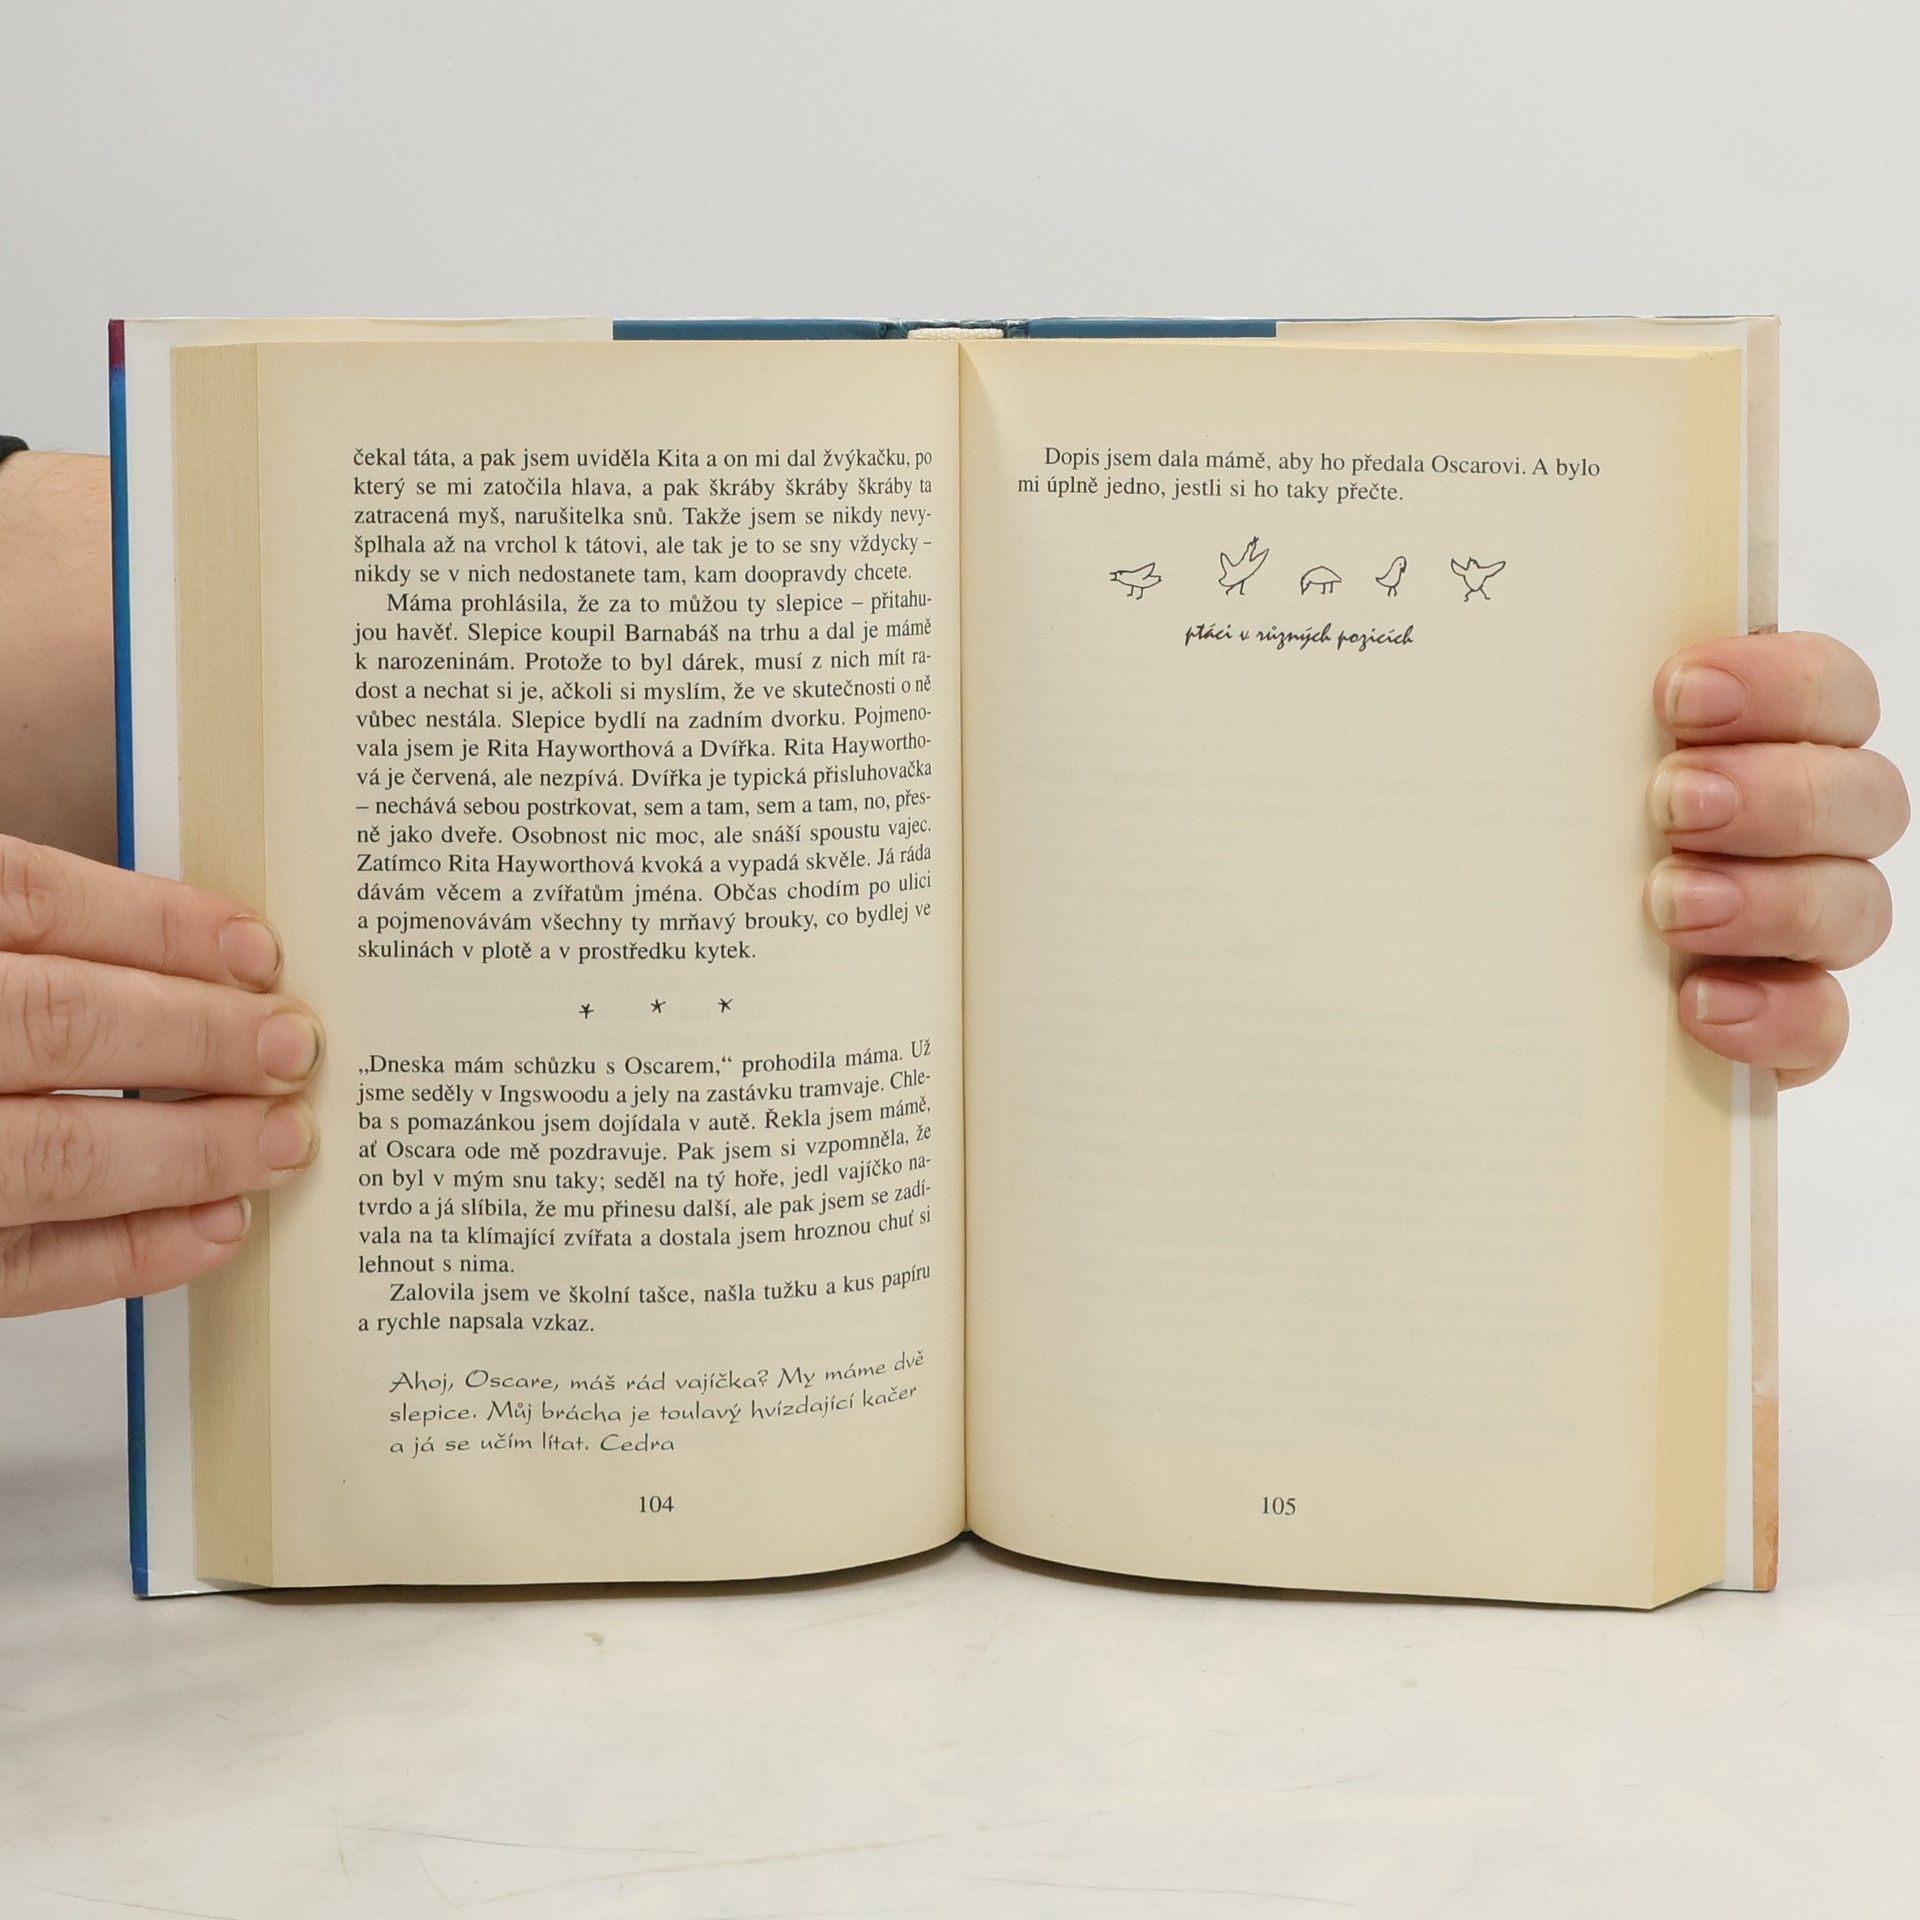 čekal táta, a pak jsem uviděla Kita a on mi dal žvýkačku, po
který se mi zatočila hlava, a pak škráby škráby škráby ta
zatracená myš, narušitelka snů. Takže jsem se nikdy nevy-
šplhala až na vrchol k tátovi, ale tak je to se sny vždycky –
nikdy se v nich nedostanete tam, kam doopravdy chcete.
Máma prohlásila, že za to můžou ty slepice – přitahu-
jou havěť. Slepice koupil Barnabáš na trhu a dal je mámě
k narozeninám. Protože to byl dárek, musí z nich mít ra-
dost a nechat si je, ačkoli si myslím, že ve skutečnosti o ně
vůbec nestála. Slepice bydlí na zadním dvorku. Pojmeno-
vala jsem je Rita Hayworthová a Dvířka. Rita Haywortho-
vá je červená, ale nezpívá. Dvířka je typická přisluhovačka
– nechává sebou postrkovat, sem a tam, sem a tam, no, přes-
ně jako dveře. Osobnost nic moc, ale snáší spoustu vajec.
Zatímco Rita Hayworthová kvoká a vypadá skvěle. Já ráda
dávám věcem a zvířatům jména. Občas chodím po ulici
a pojmenovávám všechny ty mrňavý brouky, co bydlej ve
skulinách v plotě a v prostředku kytek.
* * *
„Dneska mám schůzku s Oscarem,“ prohodila máma. Už
jsme seděly v Ingswoodu a jely na zastávku tramvaje. Chle-
ba s pomazánkou jsem dojídala v autě. Řekla jsem mámě,
ať Oscara ode mě pozdravuje. Pak jsem si vzpomněla, že
on byl v mým snu taky; seděl na tý hoře, jedl vajíčko na-
tvrdo a já slíbila, že mu přinesu další, ale pak jsem se zadí-
vala na ta klímající zvířata a dostala jsem hroznou chuť si
lehnout s nima.
Zalovila jsem ve školní tašce, našla tužku a kus papíru
a rychle napsala vzkaz.
Ahoj, Oscare, máš rád vajíčka? My máme dvě
slepice. Můj brácha je toulavý hvízdající kačer
a já se učím lítat. Cedra
104
Dopis jsem dala mámě, aby ho předala Oscarovi. A bylo
mi úplně jedno, jestli si ho taky přečte.
ptáci v různých pozicích
105